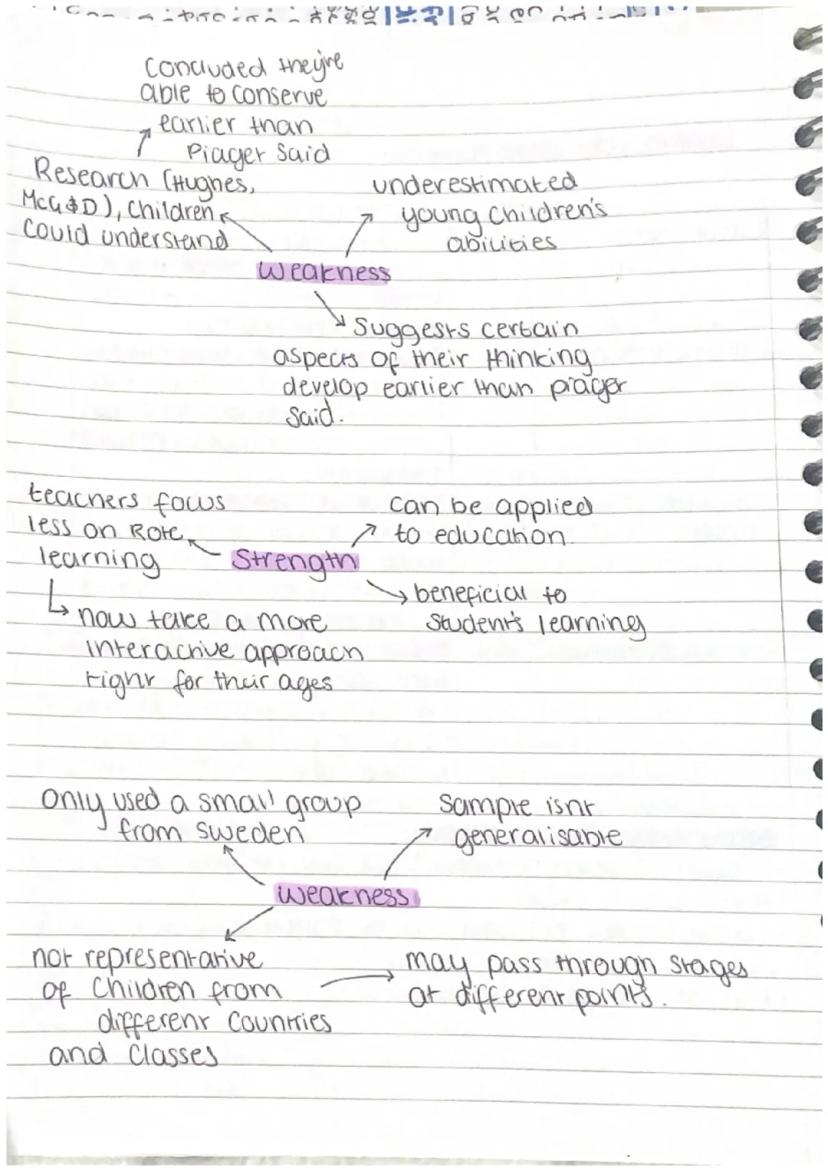 Concluded they're
able to conserve
earlier than
Piaget said
Research (Hughes,
McG&D), Children
Could understand
underestimated
young Children's
abilities
Weakness
Suggests certain
aspects of their thinking
develop earlier than piaget
said.
teachers focus
less on Rote
learning
can be applied
to education
Strength
now take a more
interactive approach
right for their ages
beneficial to
Student's learning
Only used a small group
from Sweden
Sample isnt
generalisable
Weakness
not representative
of Children from
different Countries
and Classes
may pass through stages
at different points.